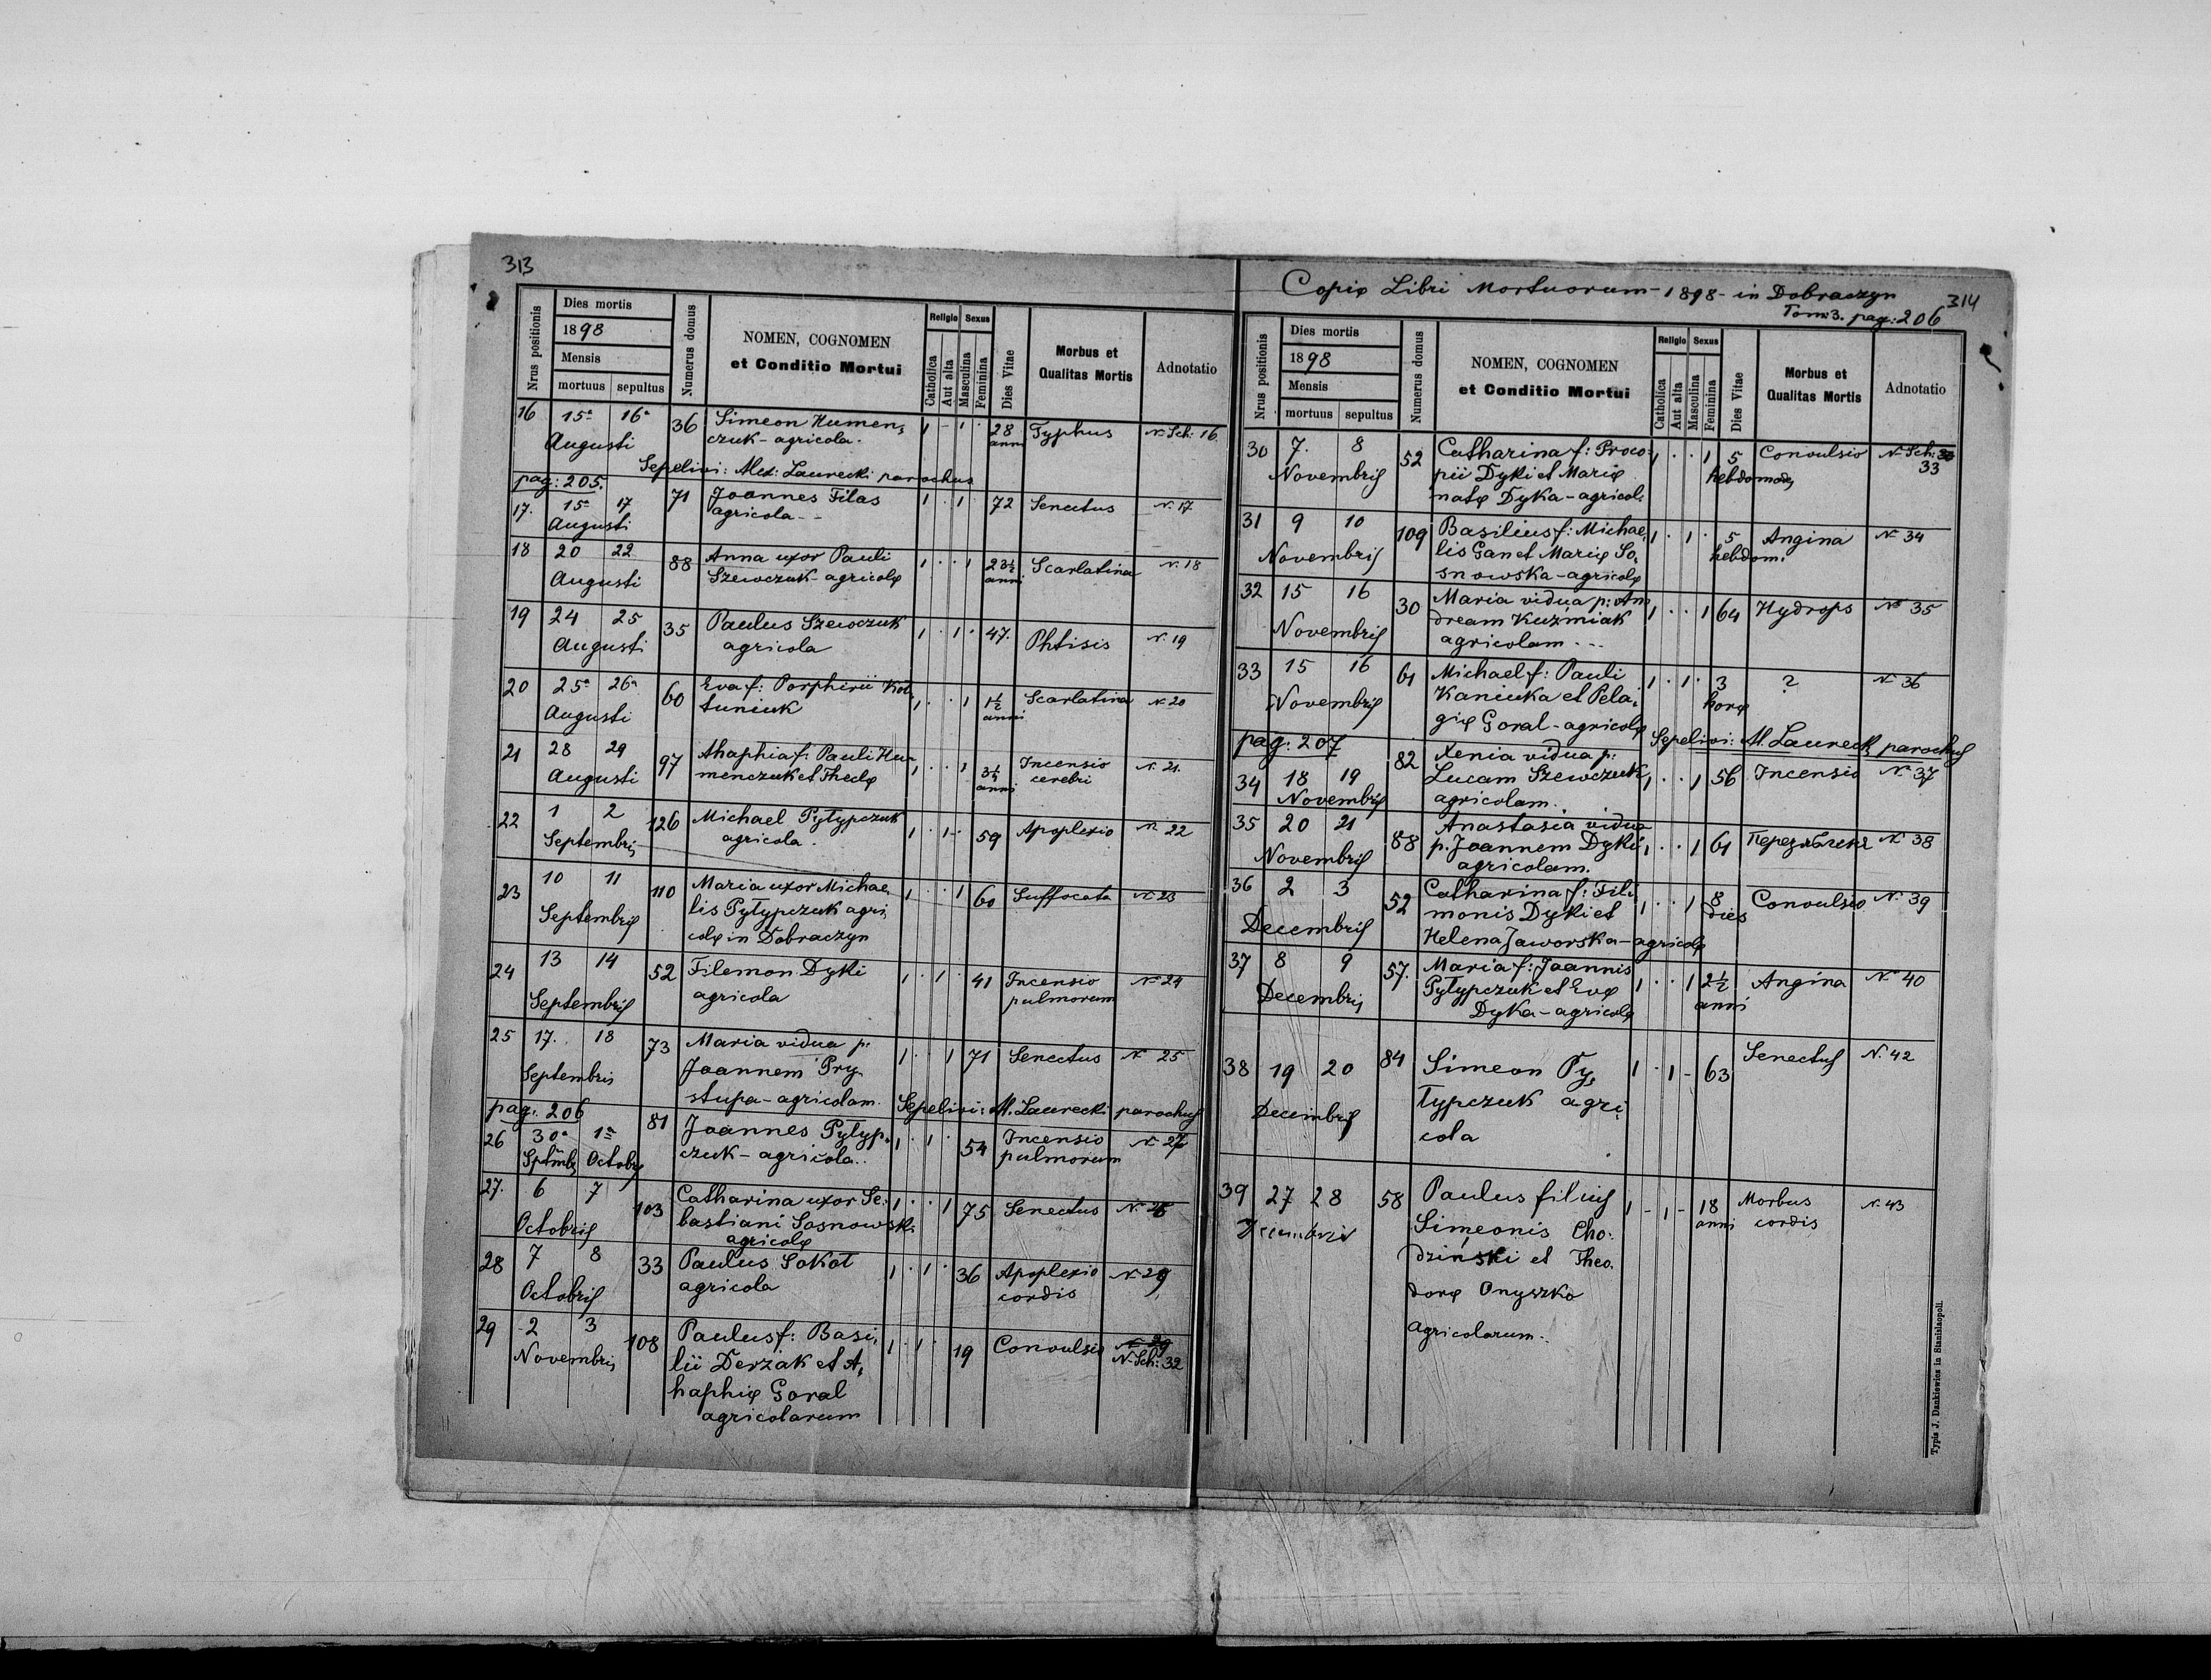 313
Nrus positionis
Dies mortis
1898
Mensis
mortuus sepultus
Numerus domus
NOMEN, COGNOMEN
et Conditio Mortui
Religio Sexus
Catholica
Aut alta
Masculina
Feminina
Dies Vitae
Morbus et
Qualitas Mortis
Adnotatio
16 15a 16a 36 Simeon Humen, 1 - 1 · 28 Typhus N. Sch: 16
Augusti czuk - agricola. anni
Sepelivi: Alex: Laurecki parochus
pag: 205.
17. 15a 17 71 Joannes Filas 1 · 1 72 Senectus N. 17
Augusti agricola - -
18 20 22 88 Anna uxor Pauli 1 · · 1 23½ Scarlatina N. 18
Augusti Szewczuk - agricolę anni
19 24 25 35 Paulus Szewczuk 1 · 1 · 47. Phtisis N. 19
Augusti agricola
20 25a 26a 60 Eva f: Porphirii Koł, 1 · · 1 1½ Scarlatina N. 20
Augusti tuniuk anni
21 28 29 97 Ahaphia f: Pauli Hu- 1 · · 1 3½ Incensio N. 21.
Augusti menczuk et Theclę anni cerebri
22 1 2 126 Michael Pyłypczuk 1 · 1 · 59 Apoplexio N. 22
Septembris agricola.
23 10 11 110 Maria uxor Michae, 1 · · 1 60 Suffocata N. 23
Septembris lis Pyłypczuk agri,
colę in Dobraczyn
24 13 14 52 Filemon Dyki 1 · 1 · 41 Incensio N. 24
Septembris agricola pulmorum
25 17. 18 73 Maria vidua p. 1 · · 1 71 Senectus N. 25
Septembris Joannem Pry,
stupa - agricolam. Sepelivi: Al. Laurecki parochus
pag. 206
26 30a 1a 81 Joannes Pyłyp, 1 · 1 · 54 Incensio N. 27
Sptmb, Octobris czuk - agricola.. pulmorum
27. 6 7 103 Catharina uxor Se, 1 · · 1 75 Senectus
Octobris bastiani Sosnowski
agricolę
28 7 8 33 Paulus Sokoł 1 · 1 · 36 Apoplexio N. 29
Octobris agricola cordis
29 2 3 108 Paulus f: Basi, 1 · 1 · 19 Convulsio N. 29
Novembris lii Derżak et A, N. Sch: 32
haphię Goral
agricolarum
Copię Libri Mortuorum - 1898 - in Dobraczyn 314
Tom: 3. pag: 206
Nrus positionis
Dies mortis
1898
Mensis
mortuus sepultus
Numerus domus
NOMEN, COGNOMEN
et Conditio Mortui
Religio Sexus
Catholica
Aut alta
Masculina
Feminina
Dies Vitae
Morbus et
Qualitas Mortis
Adnotatio
30 7. 8 52 Catharina f: Proco- 1 · · 1 5 Convulsio N. Sch:
Novembris pii Dyki et Marię hebdomadę 33
natę Dyka - agricol.
31 9 10 109 Basilius f: Michae, 1 · 1 · 5 Angina N. 34
Novembris lis Gan et Marię So, hebdom:
snowska - agricolę
32 15 16 30 Maria vidua p: An 1 · · 1 64 Hydrops N. 35
Novembris dream Kuźmiak
agricolam - - -
33 15 16 61 Michael f: Pauli 1 · 1 · 3 ? N. 36
Novembris Kaniuka et Pela, horę
gię Goral - agricolę Sepelivi: Al. Laurecki parochus
pag: 207
34 18 19 82 Xenia vidua p: 1 · · 1 56 Incensio N. 37
Novembris Lucam Szewczuk
agricolam.
35 20 21 88 Anastasia vidua 1 · · 1 61 N. 38
Novembris p. Joannem Dyki
agricolam.
36 2 3 52 Catharina f: Fili 1 · · 1 8 Convulsio N. 39
Decembris monis Dyki et dies
Helena Jaworska - agricolę
37 8 9 57. Maria f: Joannis 1 · · 1 2½ Angina N. 40
Decembris Pyłypczuk et Evę anni
Dyka - agricolę
38 19 20 84 Simeon Py, 1 · 1 - 63 Senectus N. 42
Decembris łypczuk agri,
cola
39 27 28 58 Paulus filius 1 - 1 - 18 Morbus N. 43
Decembris Simeonis Cho. anni cordis
dziński et Theo.
dorę Onyszko
agricolarum.
Typis J. Dankiewicz in Stanislaopoli.